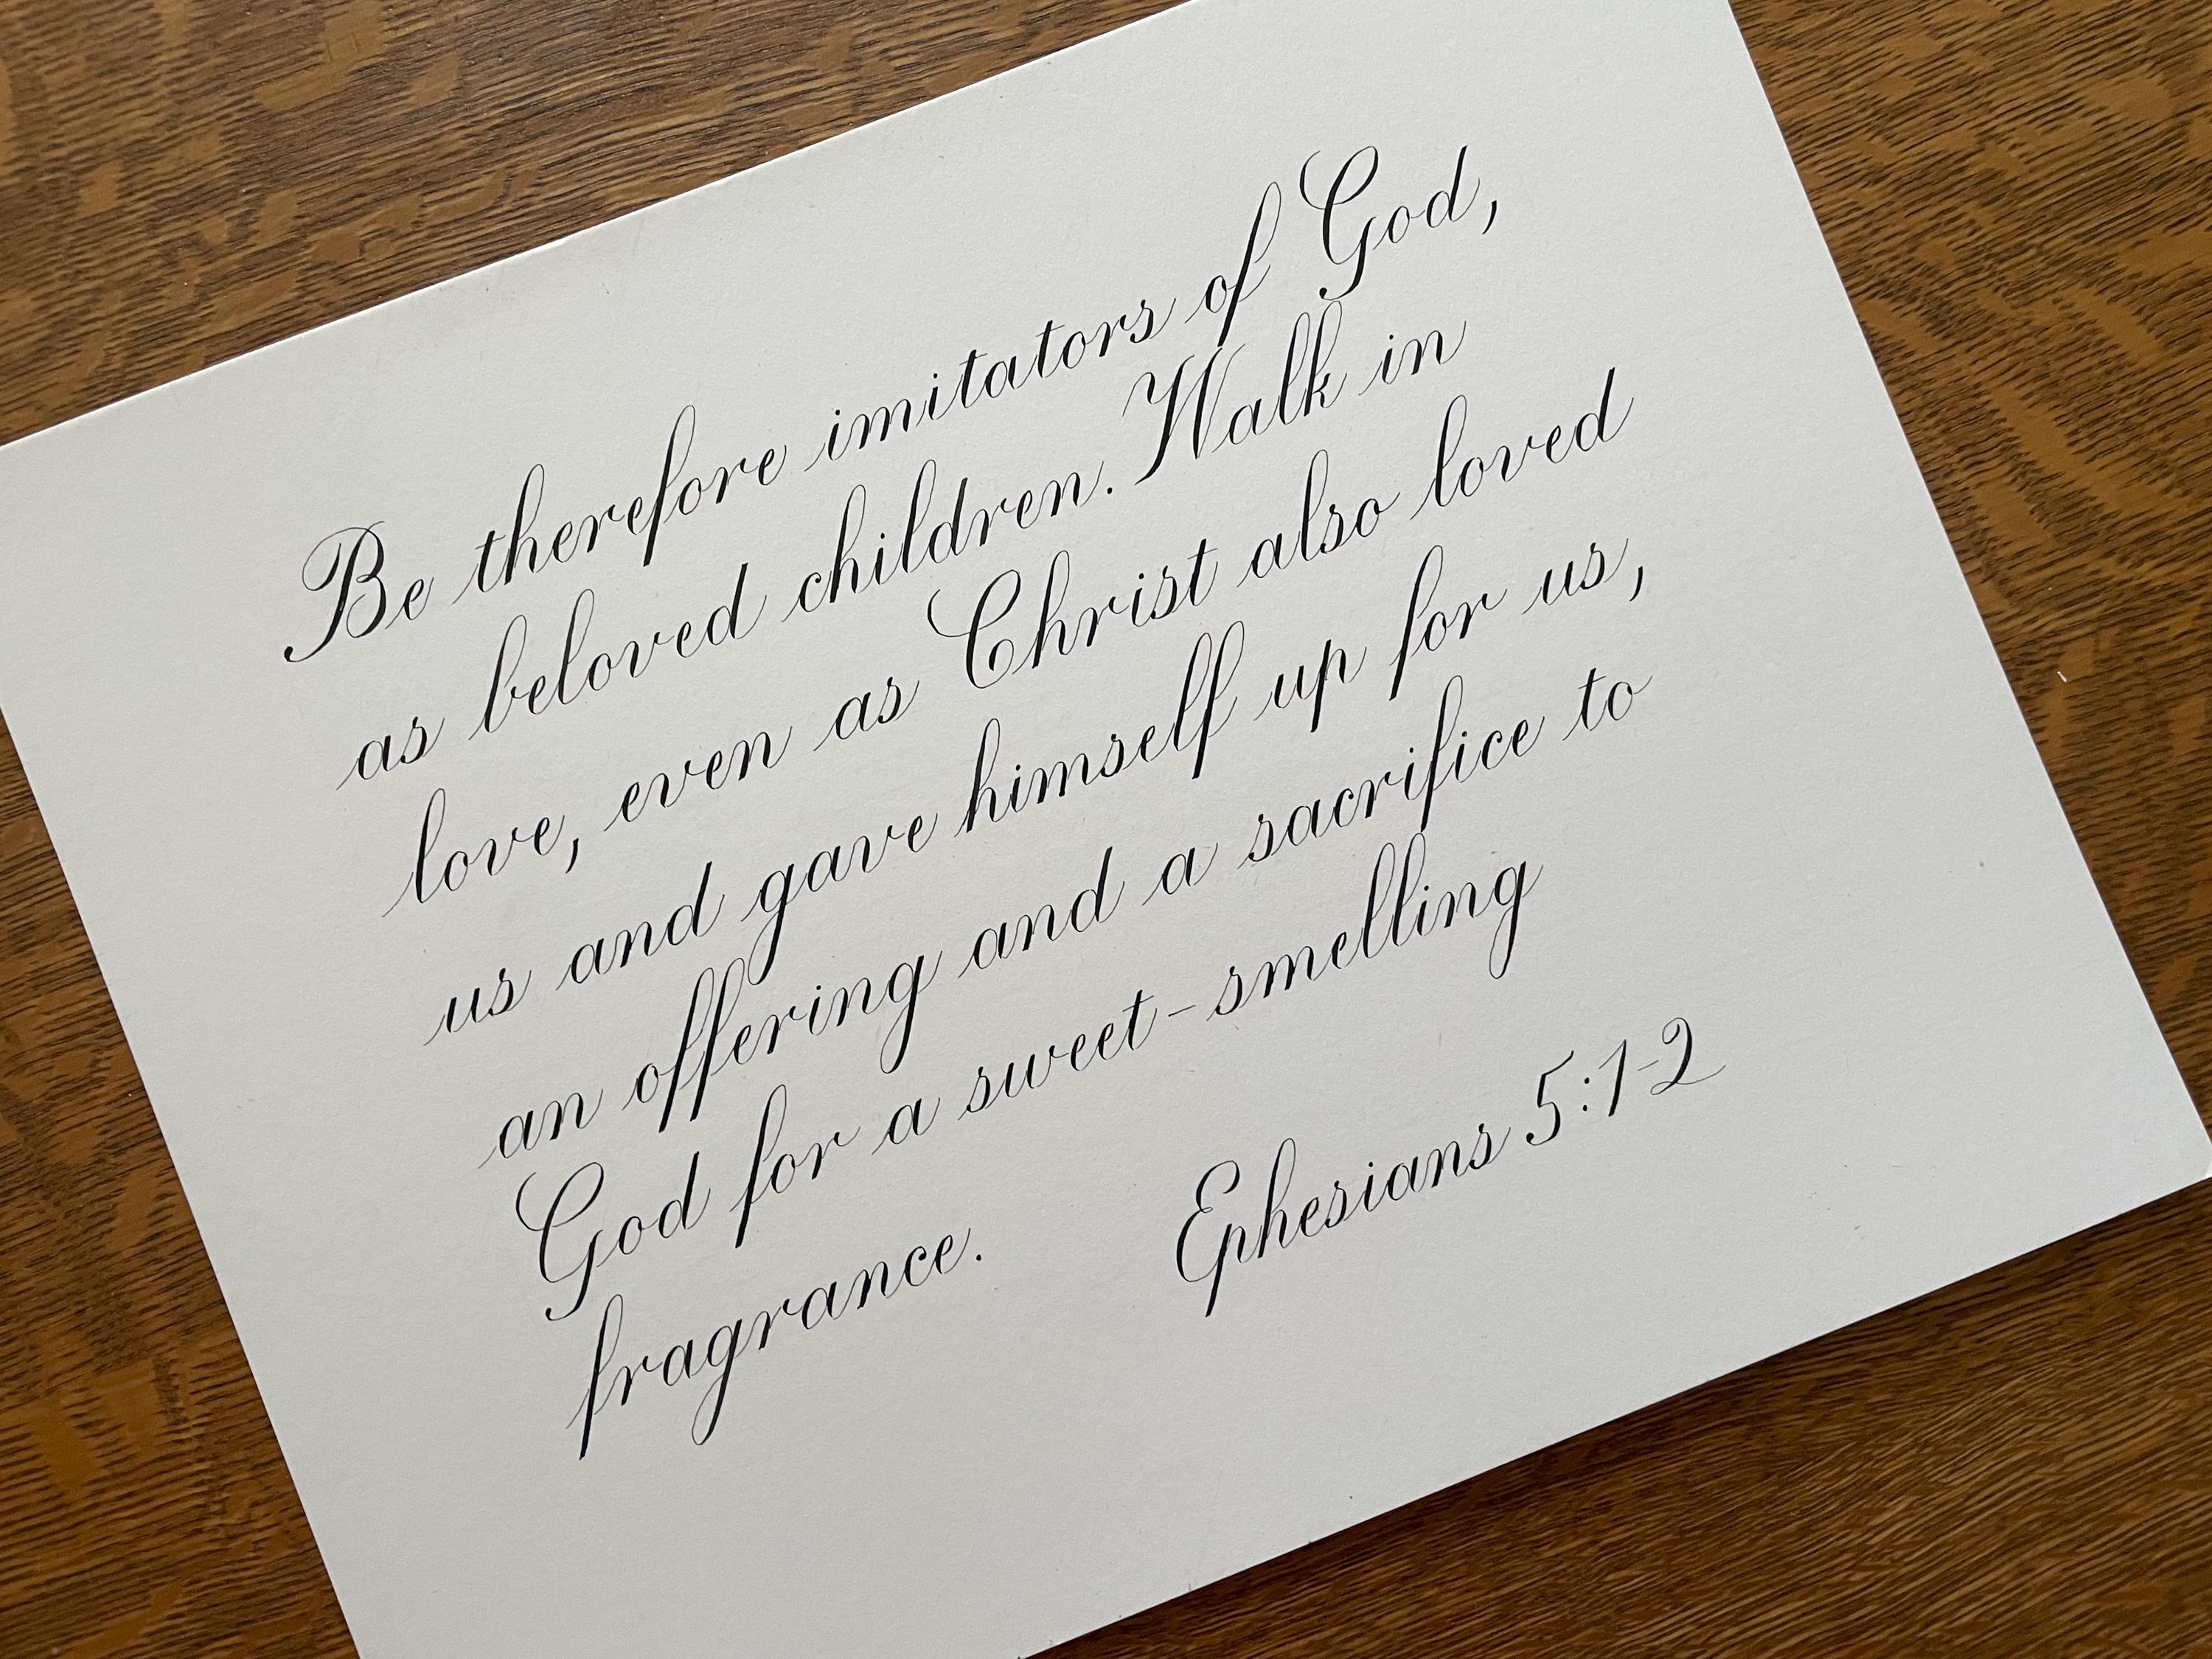 Be therefore imitators of God,
as beloved children. Walk in
love, even as Christ also loved
us and gave himself up for us,
an offering and a sacrifice to
God for a sweet-smelling
fragrance. Ephesians 5:1-2